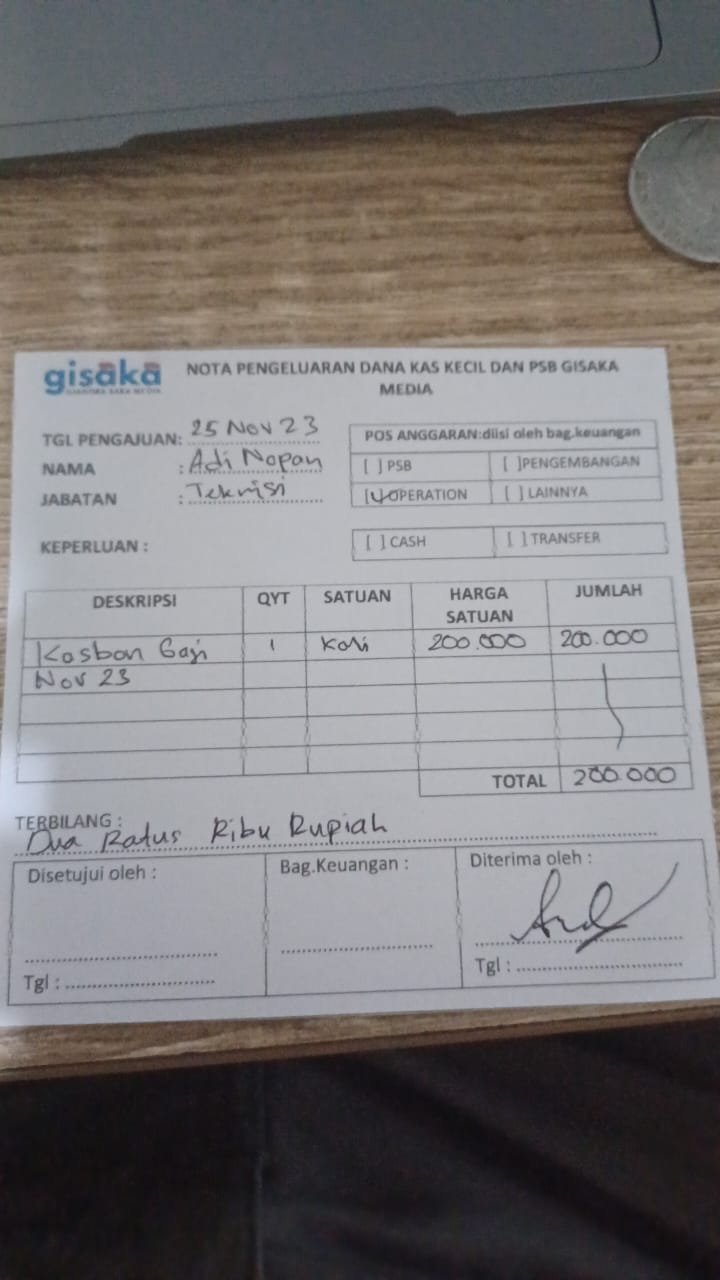 gisaka
NOTA PENGELUARAN DANA KAS KECIL DAN PSB GISAKA
MEDIA
TGL PENGAJUAN: 25 Nov 23
NAMA : Adi Nopan
JABATAN : Teknisi
KEPERLUAN :
POS ANGGARAN:diisi oleh bag.keuangan
[ ] PSB [ ]PENGEMBANGAN
[✓]OPERATION [ ] LAINNYA
[ ] CASH [ ] TRANSFER
DESKRIPSI QYT SATUAN HARGA SATUAN JUMLAH
Kasbon Gaji 1 Kali 200.000 200.000
Nov 23
TOTAL 200.000
TERBILANG :
Dua Ratus Ribu Rupiah
Disetujui oleh : Bag.Keuangan : Diterima oleh :
Tgl : Tgl :